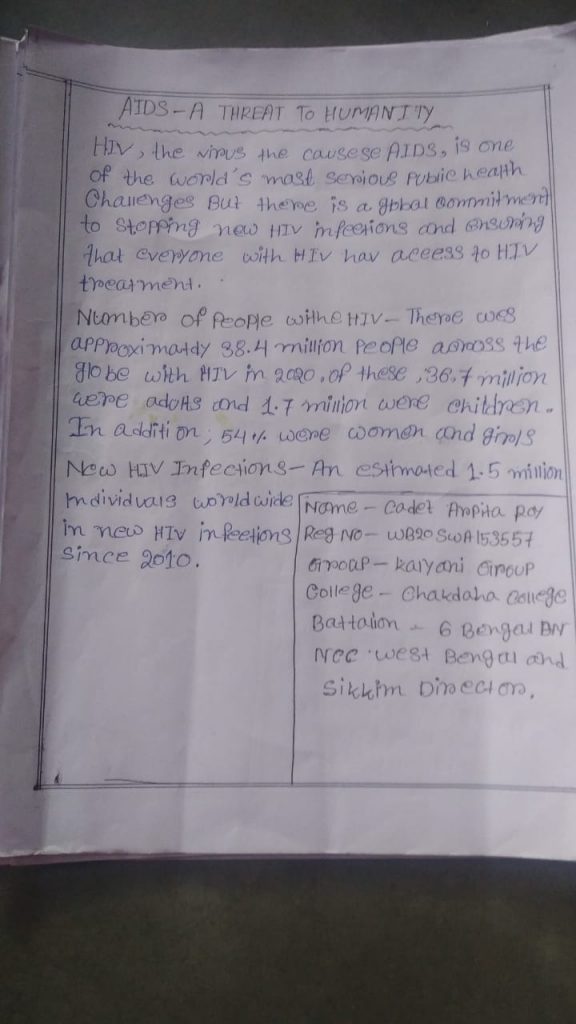 AIDS-A THREAT TO HUMANITY
HIV, the virus the causese AIDS, is one
of the world's most serious Public health
Challenges But there is a global commitment
to stopping new HIV infections and ensuring
that everyone with HIV hav aceess to HIV
treatment.
Number of People withe HIV- There wes
approximatdy 38.4 million People across the
globe with HIV in 2020, of these, 36.7 million
were adults and 1.7 million were children.
In addition, 54% were women and girls
New HIV Infections- An estimated 1.5 million
individuals worldwide
in new HIV infections
since 2010.
Name - Cadet Arpita Roy
Reg No - WB20SWA153557
Group - Kalyani Group
College - Chakdaha College
Battalion - 6 Bengal BN
NCC West Bengal and
Sikkim Director.